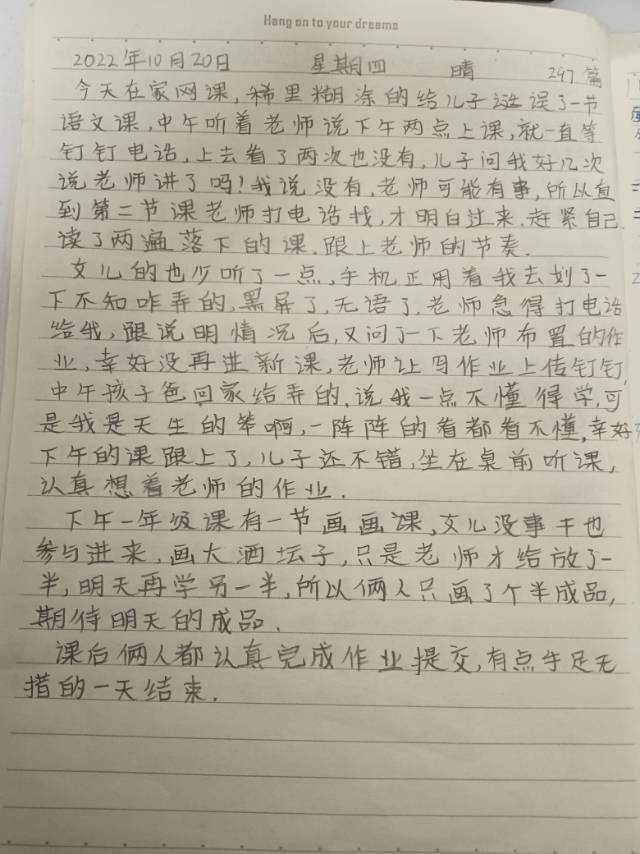 Hang on to your dreams
2022年10月20日 星期四 晴 297篇
今天在家网课,稀里糊涂的给儿子迟误了一节
语文课,中午听着老师说下午两点上课,就一直等
钉钉电话,上去看了两次也没有,儿子问我好几次
说老师讲了吗!我说没有,老师可能有事,所以直
到第二节课老师打电话找,才明白过来.赶紧自己
读了两遍落下的课.跟上老师的节奏.
女儿的也少听了一点,手机正用着我去划了一
下不知咋弄的,黑屏了,无语了,老师急得打电话
给我,跟说明情况后,又问了一下老师布置的作
业,幸好没再进新课,老师让写作业上传钉钉,
中午孩子爸回家给弄的,说我一点不懂得学,可
是我是天生的笨啊,一阵阵的看都看不懂,幸好
下午的课跟上了,儿子还不错,坐在桌前听课,
认真想着老师的作业.
下午一年级课有一节画画课,女儿没事干也
参与进来,画大酒坛子,只是老师才给放了一
半,明天再学另一半,所以俩人只画了个半成品,
期待明天的成品.
课后俩人都认真完成作业提交,有点手足无
措的一天结束.